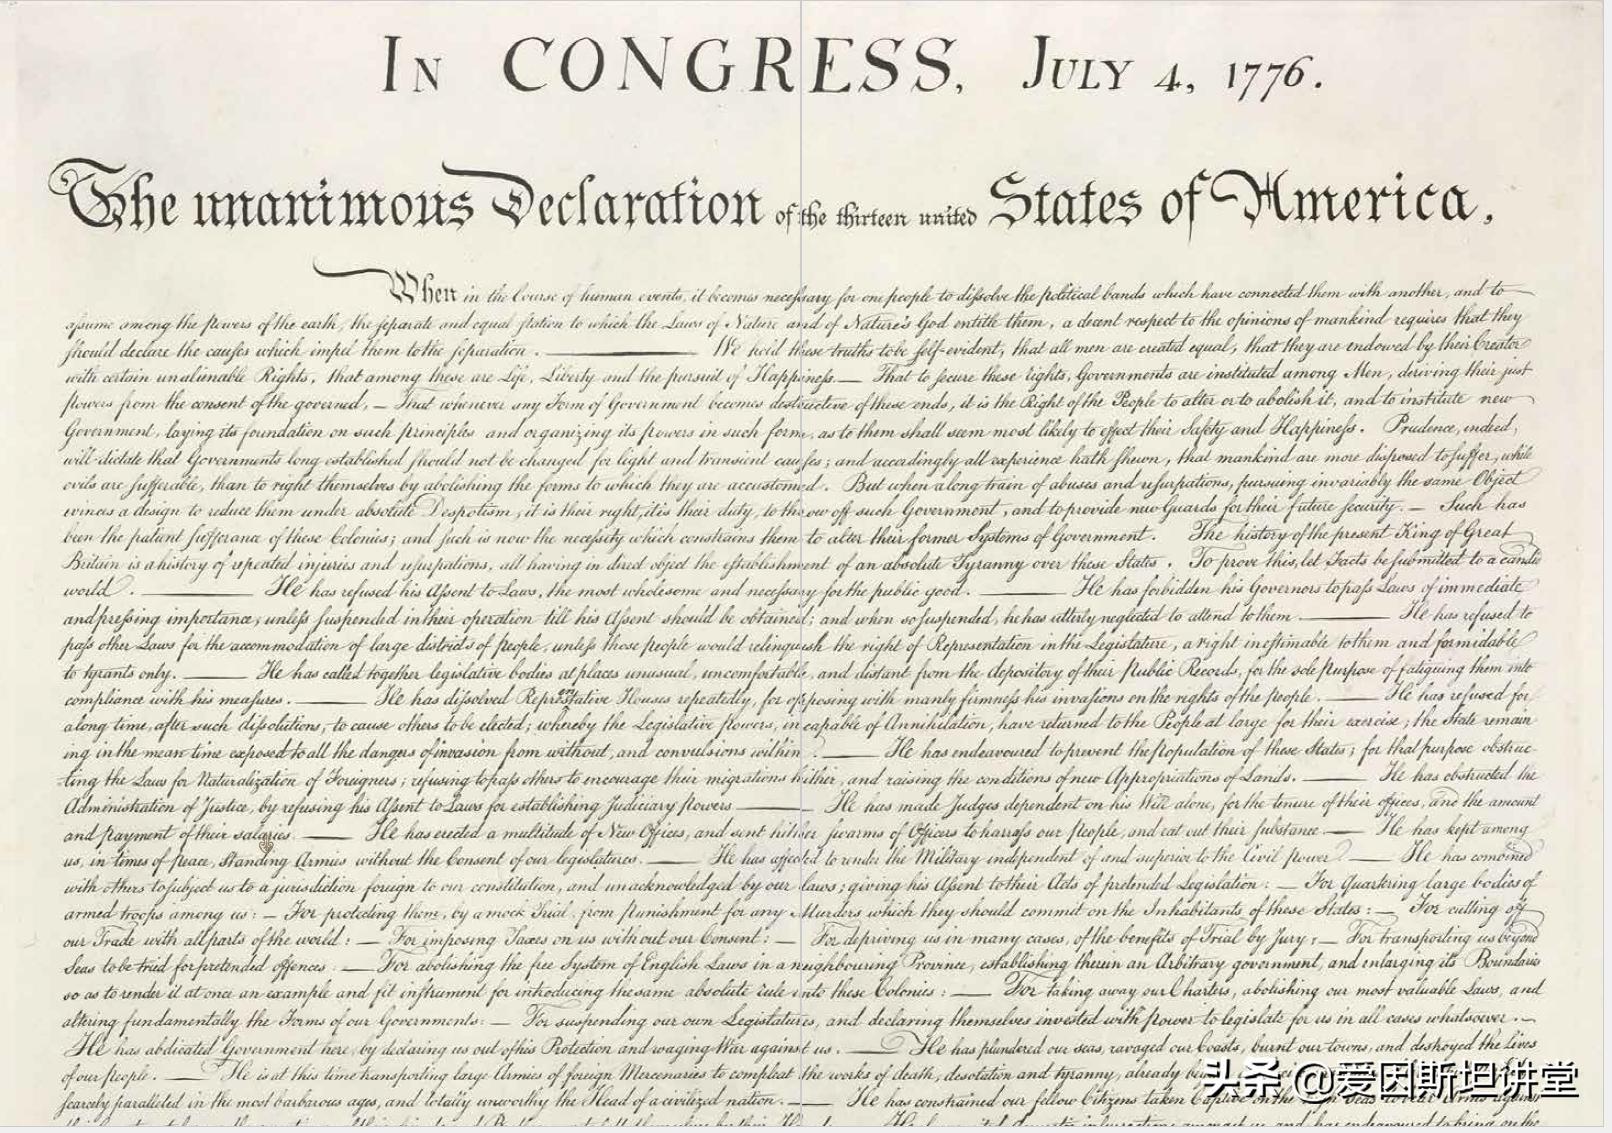 In CONGRESS, July 4, 1776.
The unanimous Declaration of the thirteen united States of America,
When in the Course of human events, it becomes necessary for one people to dissolve the political bands which have connected them with another, and to
assume among the powers of the earth, the separate and equal station to which the Laws of Nature and of Nature's God entitle them, a decent respect to the opinions of mankind requires that they
should declare the causes which impel them to the separation. ——— We hold these truths to be self-evident, that all men are created equal, that they are endowed by their Creator
with certain unalienable Rights, that among these are Life, Liberty and the pursuit of Happiness. — That to secure these rights, Governments are instituted among Men, deriving their just
powers from the consent of the governed, — That whenever any Form of Government becomes destructive of these ends, it is the Right of the People to alter or to abolish it, and to institute new
Government, laying its foundation on such principles and organizing its powers in such form, as to them shall seem most likely to effect their Safety and Happiness. Prudence, indeed,
will dictate that Governments long established should not be changed for light and transient causes; and accordingly all experience hath shewn, that mankind are more disposed to suffer, while
evils are sufferable, than to right themselves by abolishing the forms to which they are accustomed. But when a long train of abuses and usurpations, pursuing invariably the same Object
evinces a design to reduce them under absolute Despotism, it is their right, it is their duty, to throw off such Government, and to provide new Guards for their future security. — Such has
been the patient sufferance of these Colonies; and such is now the necessity which constrains them to alter their former Systems of Government. The history of the present King of Great
Britain is a history of repeated injuries and usurpations, all having in direct object the establishment of an absolute Tyranny over these States. To prove this, let Facts be submitted to a candid
world. ——— He has refused his Assent to Laws, the most wholesome and necessary for the public good. ——— He has forbidden his Governors to pass Laws of immediate
and pressing importance, unless suspended in their operation till his Assent should be obtained; and when so suspended, he has utterly neglected to attend to them. ——— He has refused to
pass other Laws for the accommodation of large districts of people, unless those people would relinquish the right of Representation in the Legislature, a right inestimable to them and formidable
to tyrants only. ——— He has called together legislative bodies at places unusual, uncomfortable, and distant from the depository of their Public Records, for the sole purpose of fatiguing them into
compliance with his measures. ——— He has dissolved Representative Houses repeatedly, for opposing with manly firmness his invasions on the rights of the people. ——— He has refused for
a long time, after such dissolutions, to cause others to be elected; whereby the Legislative powers, incapable of Annihilation, have returned to the People at large for their exercise; the State remain
ing in the mean time exposed to all the dangers of invasion from without, and convulsions within. ——— He has endeavoured to prevent the population of these States; for that purpose obstruc-
ting the Laws for Naturalization of Foreigners; refusing to pass others to encourage their migrations hither, and raising the conditions of new Appropriations of Lands. ——— He has obstructed the
Administration of Justice, by refusing his Assent to Laws for establishing Judiciary powers ——— He has made Judges dependent on his Will alone, for the tenure of their offices, and the amount
and payment of their salaries. ——— He has erected a multitude of New Offices, and sent hither swarms of Officers to harrass our people, and eat out their substance. — He has kept among
us, in times of peace, Standing Armies without the Consent of our legislatures. ——— He has affected to render the Military independent of and superior to the Civil power. — He has combined
with others to subject us to a jurisdiction foreign to our constitution, and unacknowledged by our laws; giving his Assent to their Acts of pretended Legislation: — For Quartering large bodies of
armed troops among us: — For protecting them, by a mock Trial, from punishment for any Murders which they should commit on the Inhabitants of these States: — For cutting off
our Trade with all parts of the world: — For imposing Taxes on us without our Consent: — For depriving us in many cases, of the benefits of Trial by Jury: — For transporting us beyond
Seas to be tried for pretended offences — For abolishing the free System of English Laws in a neighbouring Province, establishing therein an Arbitrary government, and enlarging its Boundaries
so as to render it at once an example and fit instrument for introducing the same absolute rule into these Colonies: — For taking away our Charters, abolishing our most valuable Laws, and
altering fundamentally the Forms of our Governments: — For suspending our own Legislatures, and declaring themselves invested with power to legislate for us in all cases whatsoever. —
He has abdicated Government here, by declaring us out of his Protection and waging War against us. — He has plundered our seas, ravaged our Coasts, burnt our towns, and destroyed the Lives
of our people. — He is at this time transporting large Armies of foreign Mercenaries to compleat the works of death, desolation and tyranny, already
scarcely paralleled in the most barbarous ages, and totally unworthy the Head of a civilized nation. — He has constrained our fellow Citizens taken Captive on the
头条 @爱因斯坦讲堂